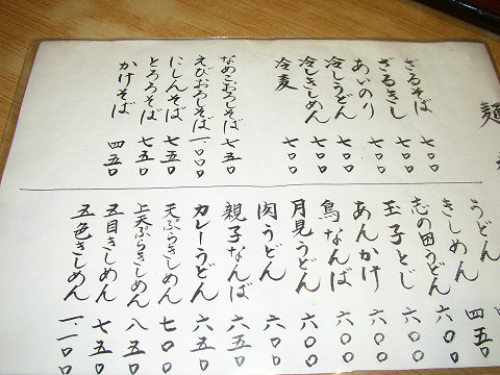 麺
ざるそば 七〇〇
ざるきし 七〇〇
あいのり 七〇〇
冷しうどん 七〇〇
冷しきしめん 七〇〇
冷麦 七〇〇
なめこおろしそば 七五〇
えびおろしそば 一.〇〇〇
にしんそば 七五〇
とろろそば 七五〇
かけそば 四五〇
うどん
きしめん 四五〇
志の田うどん 六〇〇
玉子とじ 六〇〇
あんかけ 六〇〇
鳥なんば 六〇〇
月見うどん 六〇〇
肉うどん 六〇〇
親子なんば 六五〇
カレーうどん 六五〇
天ぷらきしめん 七〇〇
上天ぷらきしめん 八五〇
五目きしめん 七五〇
五色きしめん 一.一〇〇